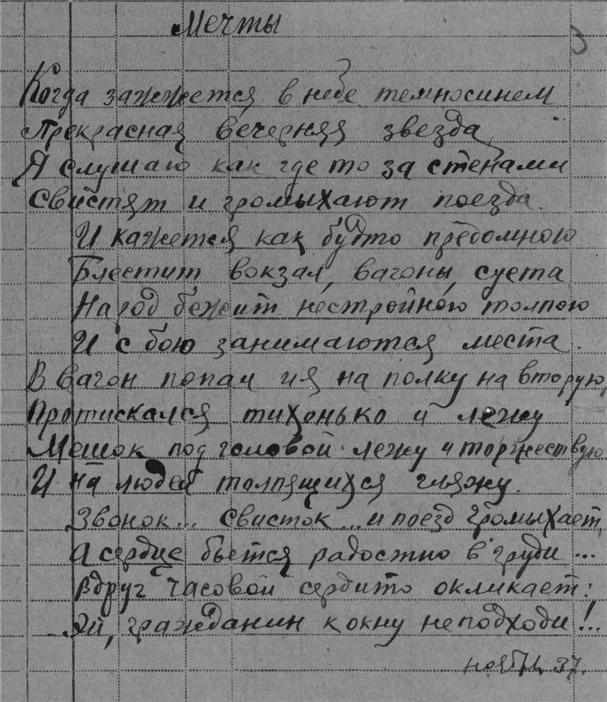 Мечты
3
Когда зажжется в небе темносинем
Прекрасная вечерняя звезда,
Я слушаю как где то за стенами
Свистят и громыхают поезда.
И кажется как будто предомною
Блестит вокзал, вагоны, суета
Народ бежит нестройною толпою
И с бою занимаются места.
В вагон попал и я на полку на вторую,
Протискался тихонько и лежу
Мешок под головой лежу и торжествую
И на людей толпящихся гляжу.
Звонок... свисток... и поезд громыхает,
А сердце бьется радостно в груди...
Вдруг часовой сердито окликает:
Эй, гражданин к окну неподходи!..
ноябрь 37.